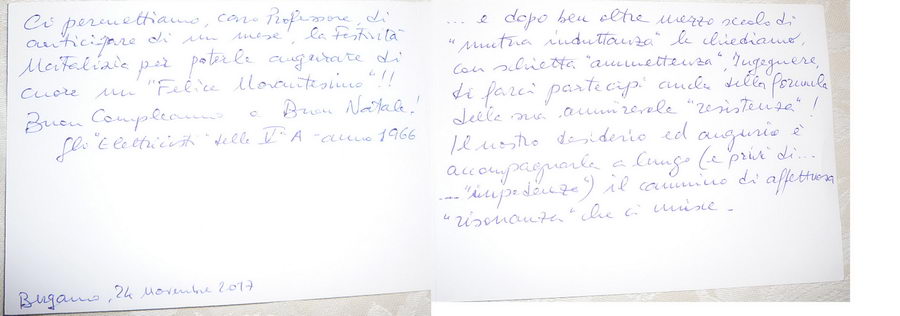 Ci permettiamo, caro Professore, di
anticipare di un mese, la Festività
Natalizia per poterle augurare di
cuore un "Felice Novantesimo"!!
Buon Compleanno e Buon Natale!
Gli "Elettricisti" della Vª A - anno 1966
Bergamo, 24 Novembre 2017
... e dopo ben oltre mezzo secolo di
"mutua induttanza" le chiediamo,
con schietta "ammettenza", Ingegnere,
di farci partecipi anche della formula
della sua ammirevole "resistenza"!
Il nostro desiderio ed augurio è
accompagnarla a lungo (e privi di...
... "impedenze") il cammino di affettuosa
"risonanza" che ci unisce.